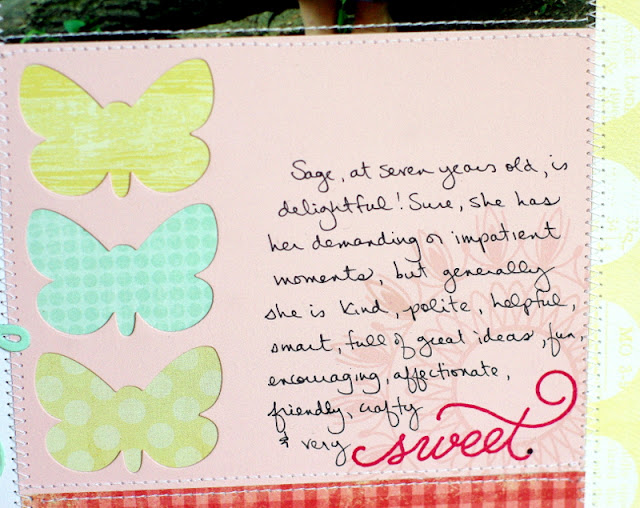 Sage, at seven years old, is
delightful! Sure, she has
her demanding or impatient
moments, but generally
she is kind, polite, helpful,
smart, full of great ideas, fun,
encouraging, affectionate,
friendly, crafty
& very sweet.